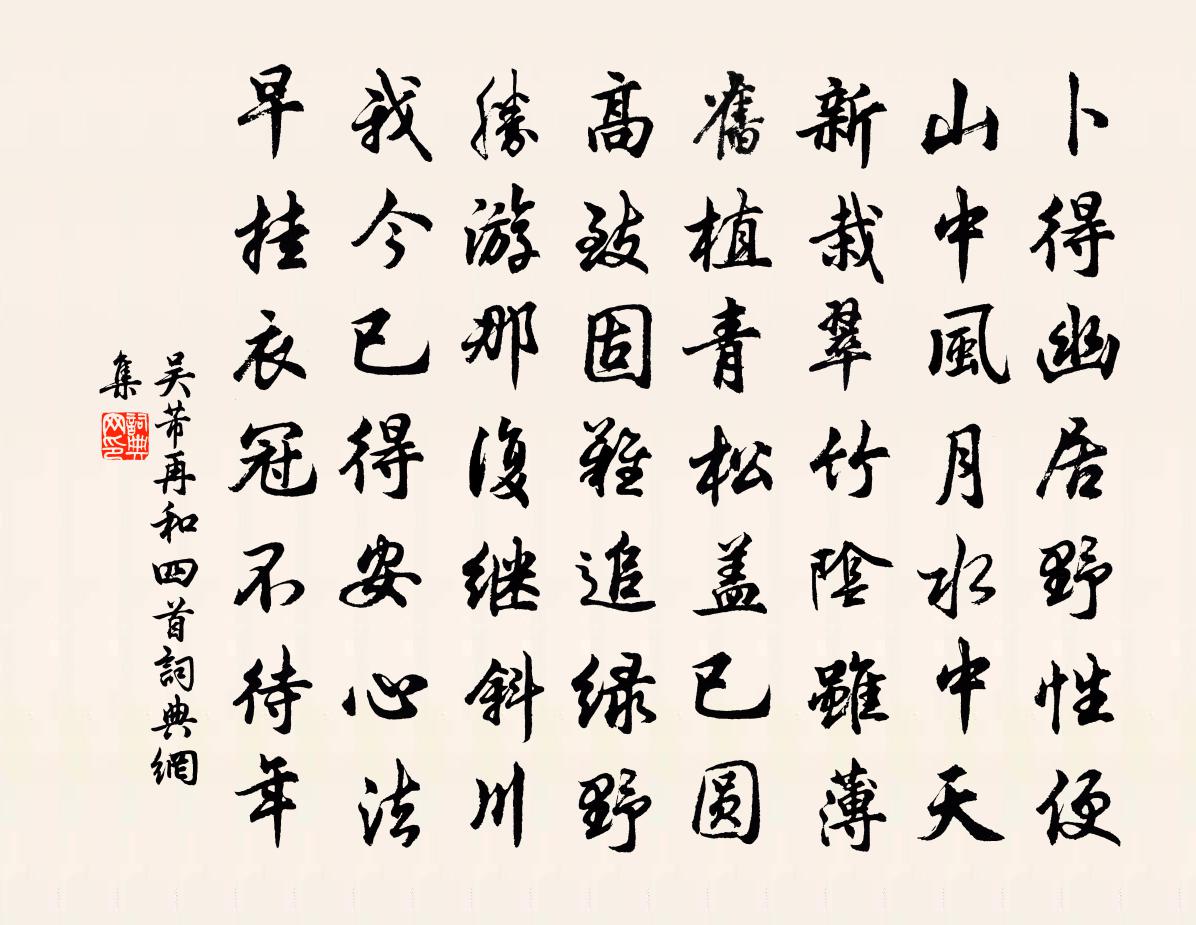 卜得幽居野性便
山中風月水中天
新栽翠竹陰雖薄
舊植青松盖已圆
高致固難追绿野
勝游那復継斜川
我今已得安心法
早挂衣冠不待年
吴芾再和四首詞典網
集
詞典
网印